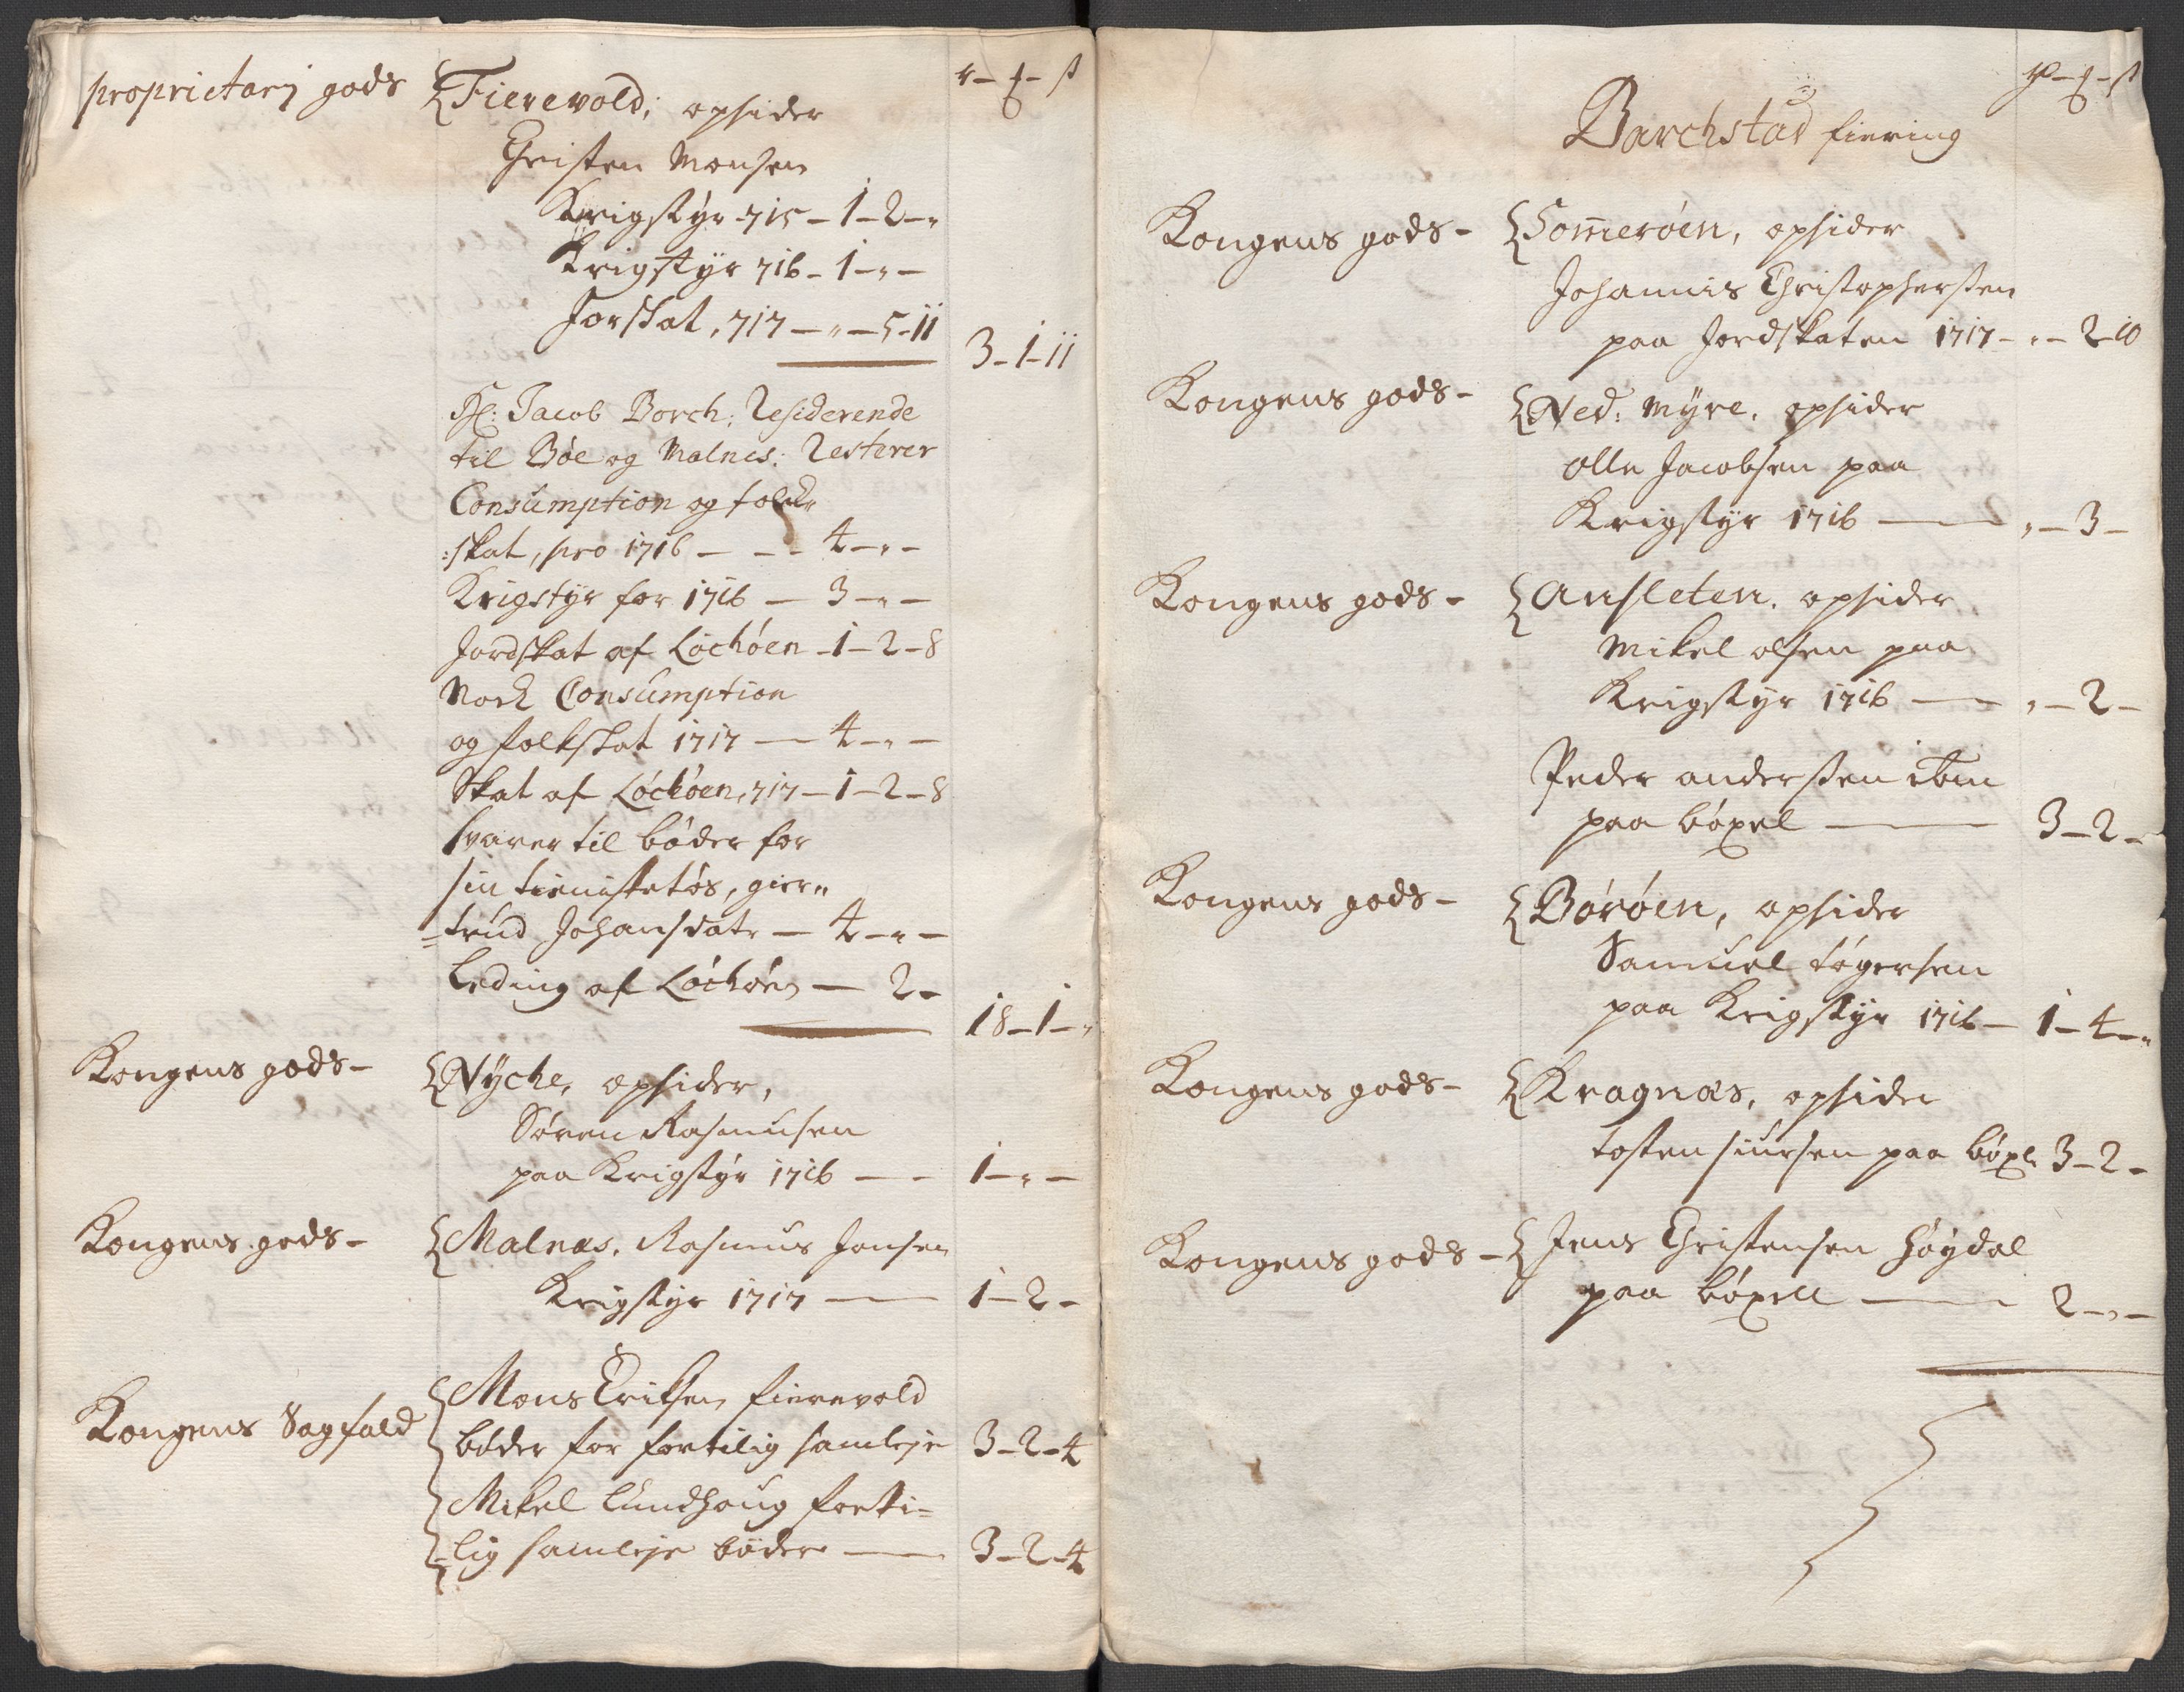 proprietarj gods
Fierevold; opsider
Christen Monsen
Krigstýr 715 – 1 – 2 – „
Krigstýr 716 – 1 – „ –
Jorskat, 717 – „ – 5 – 11
3 – 1 – 11
Hr: Jacob Borch; Residerende
til Bøe og Malnes; Resterer
Consumption og folck„
:skat, pro 1716 – – – 4 – „ –
Krigstýr for 1716 – 3 – „ –
Jordskat af Løchøen – 1 – 2 – 8
Nock Consumption
og folkskat 1717 – 4 – „ –
Skat af Løchøen, 717 – 1 – 2 – 8
svarer til bøder for
sin tienistetøs, gier„
=trud Johansdatr – 4 – „ –
Leding af Løchøen – 2 –
18 – 1 – „
Kongens gods –
Nýche, opsider,
Søren Rasmusen
paa Krigstýr 1716 – – 1 – „ –
Kongens gods –
Malnæs, Rasmus Jonsen
Krigstýr 1717 – 1 – 2 –
Kongens Sagfald
Mons Eriksen fierevold
bøder for fortilig samleje 3 – 2 – 4
Mikel Lundhoug forti=
=lig samleje bøder – 3 – 2 – 4
Barchstad fiering
Kongens gods –
Som̅erøen, opsider
Johannis Christophersen
paa Jordskaten 1717 – „ – 2 – 10
Kongens gods –
Ned: mýre, opsider
olle Jacobsen paa
Krigstýr 1716 – „ – 3 –
Kongens gods –
Ansleten, opsider
Mikel olsen paa
Krigstýr 1716 – „ – 2 –
Peder andersen
paa bøxel – 3 – 2 –
Kongens gods –
Børøen, opsider
Samuel tøgersen
paa Krigstýr 1716 – 1 – 4 – „
Kongens gods –
Kragnæs, opsider
tosten siursen paa bøxl: 3 – 2 –
Kongens gods –
Jens Christensen Høýdal
paa bøxell – 2 – „ –